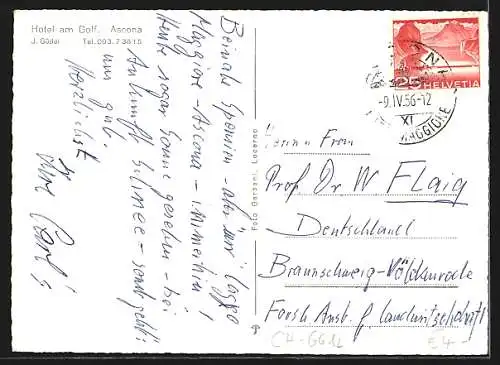 Hotel am Golf. Ascona
J. Gödel Tel. 093.73615
Beinahe Spanien - aber nur Lago
Maggiore - Ascona - immerhin!
Heute sogar Sonne gesehen - bei
Ankunft Schnee - sonst geht's
uns gut.
Herzlichst
Ihre
Foto Garbani, Locarno
25
HELVETIA
ASCONA
-9.IV.56-12
XI
MAGGIORE
Herrn u Frau
Prof. Dr W FLaig
Deutschland
Braunschweig-Völkenrode
Forsch Anst. f Landwirtschaft
CH-6612
54-